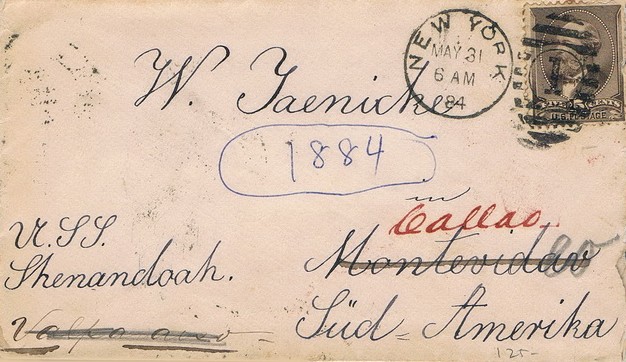 NEW YORK
MAY 31
6 AM
84
FIVE 5 CENTS
U.S. POSTAGE
W. Jaenicke
1884
in
Callao
U.S.S.
Shenandoah.
Montevidao
80
Valparaiso
Süd-Amerika
125-